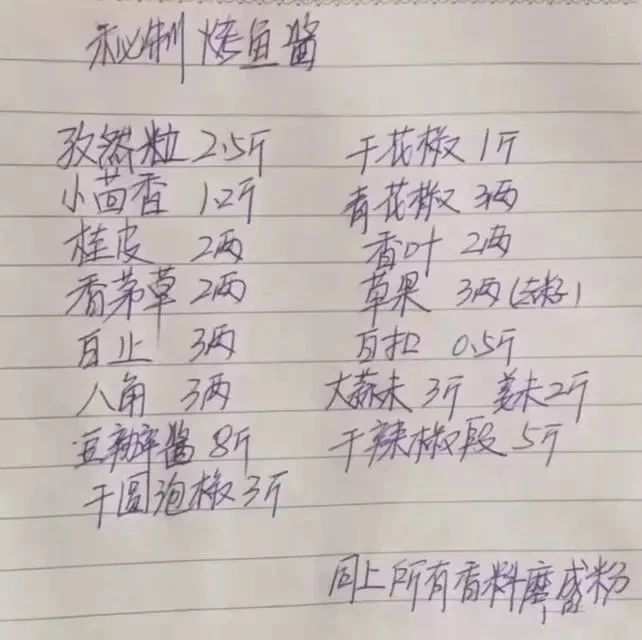 秘制烤鱼酱
孜然粒 2.5斤 干花椒 1斤
小茴香 1.2斤 青花椒 3两
桂皮 2两 香叶 2两
香茅草 2两 草果 3两(去籽)
百止 3两 百扣 0.5斤
八角 3两 大蒜末 3斤 姜末2斤
豆瓣酱 8斤 干辣椒段 5斤
干圆泡椒 3斤
同上所有香料磨成粉